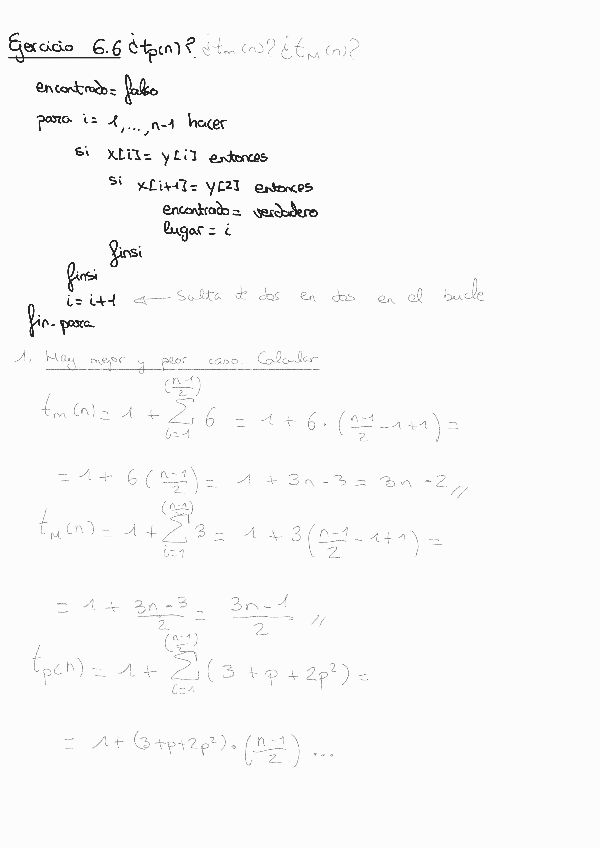 Ejercicio 6.6 ¿tp(n)? ¿tm(n)? ¿tM(n)?
encontrado = falso
para i = 1,...,n-1 hacer
si x[i] = y[i] entonces
si x[i+1] = y[2] entonces
encontrado = verdadero
lugar = i
finsi
finsi
i = i+1 ← Salta de dos en dos en el bucle
fin-para
1. Hay mejor y peor caso. Calcular
tm(n) = 1 + ∑_{i=1}^{(n-1)/2} 6 = 1 + 6 · ((n-1)/2 - 1 + 1) =
= 1 + 6 ((n-1)/2) = 1 + 3n - 3 = 3n - 2 //
tM(n) = 1 + ∑_{i=1}^{(n-1)/2} 3 = 1 + 3 ((n-1)/2 - 1 + 1) =
= 1 + (3n-3)/2 = (3n-1)/2 //
tp(n) = 1 + ∑_{i=1}^{(n-1)/2} (3 + p + 2p²) =
= 1 + (3+p+2p²) · ((n-1)/2) ...